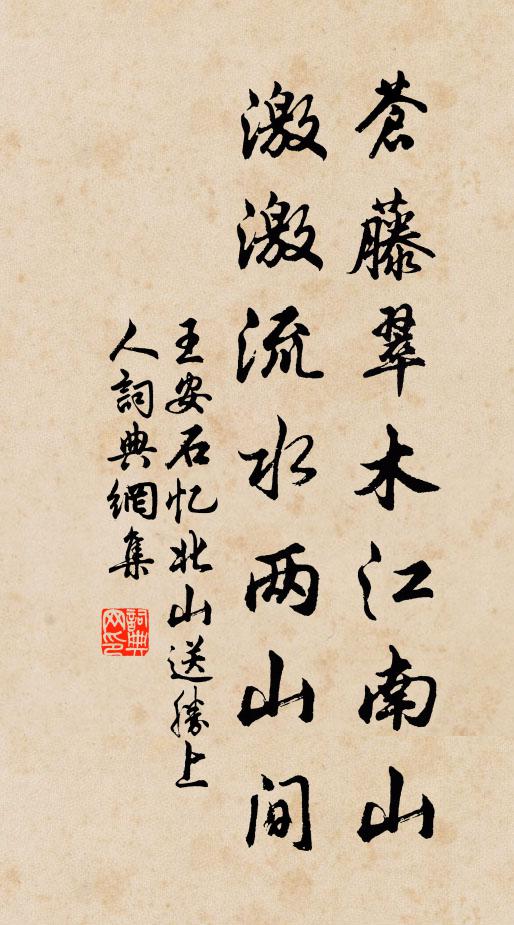 蒼藤翠木江南山
激激流水两山間
王安石忆北山送勝上
人詞典網集
詞典网印